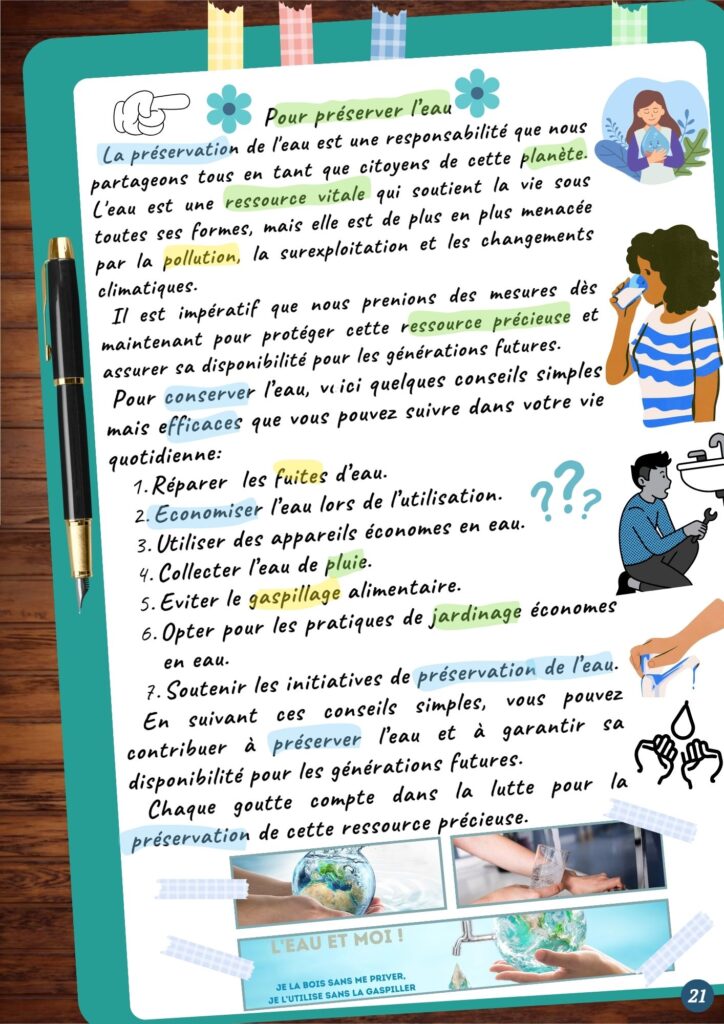 Pour préserver l'eau
La préservation de l'eau est une responsabilité que nous
partageons tous en tant que citoyens de cette planète.
L'eau est une ressource vitale qui soutient la vie sous
toutes ses formes, mais elle est de plus en plus menacée
par la pollution, la surexploitation et les changements
climatiques.
Il est impératif que nous prenions des mesures dès
maintenant pour protéger cette ressource précieuse et
assurer sa disponibilité pour les générations futures.
Pour conserver l'eau, voici quelques conseils simples
mais efficaces que vous pouvez suivre dans votre vie
quotidienne:
1. Réparer les fuites d'eau.
2. Economiser l'eau lors de l'utilisation.
3. Utiliser des appareils économes en eau.
4. Collecter l'eau de pluie.
5. Eviter le gaspillage alimentaire.
6. Opter pour les pratiques de jardinage économes
en eau.
7. Soutenir les initiatives de préservation de l'eau.
En suivant ces conseils simples, vous pouvez
contribuer à préserver l'eau et à garantir sa
disponibilité pour les générations futures.
Chaque goutte compte dans la lutte pour la
préservation de cette ressource précieuse.
L'EAU ET MOI !
JE LA BOIS SANS ME PRIVER,
JE L'UTILISE SANS LA GASPILLER
21